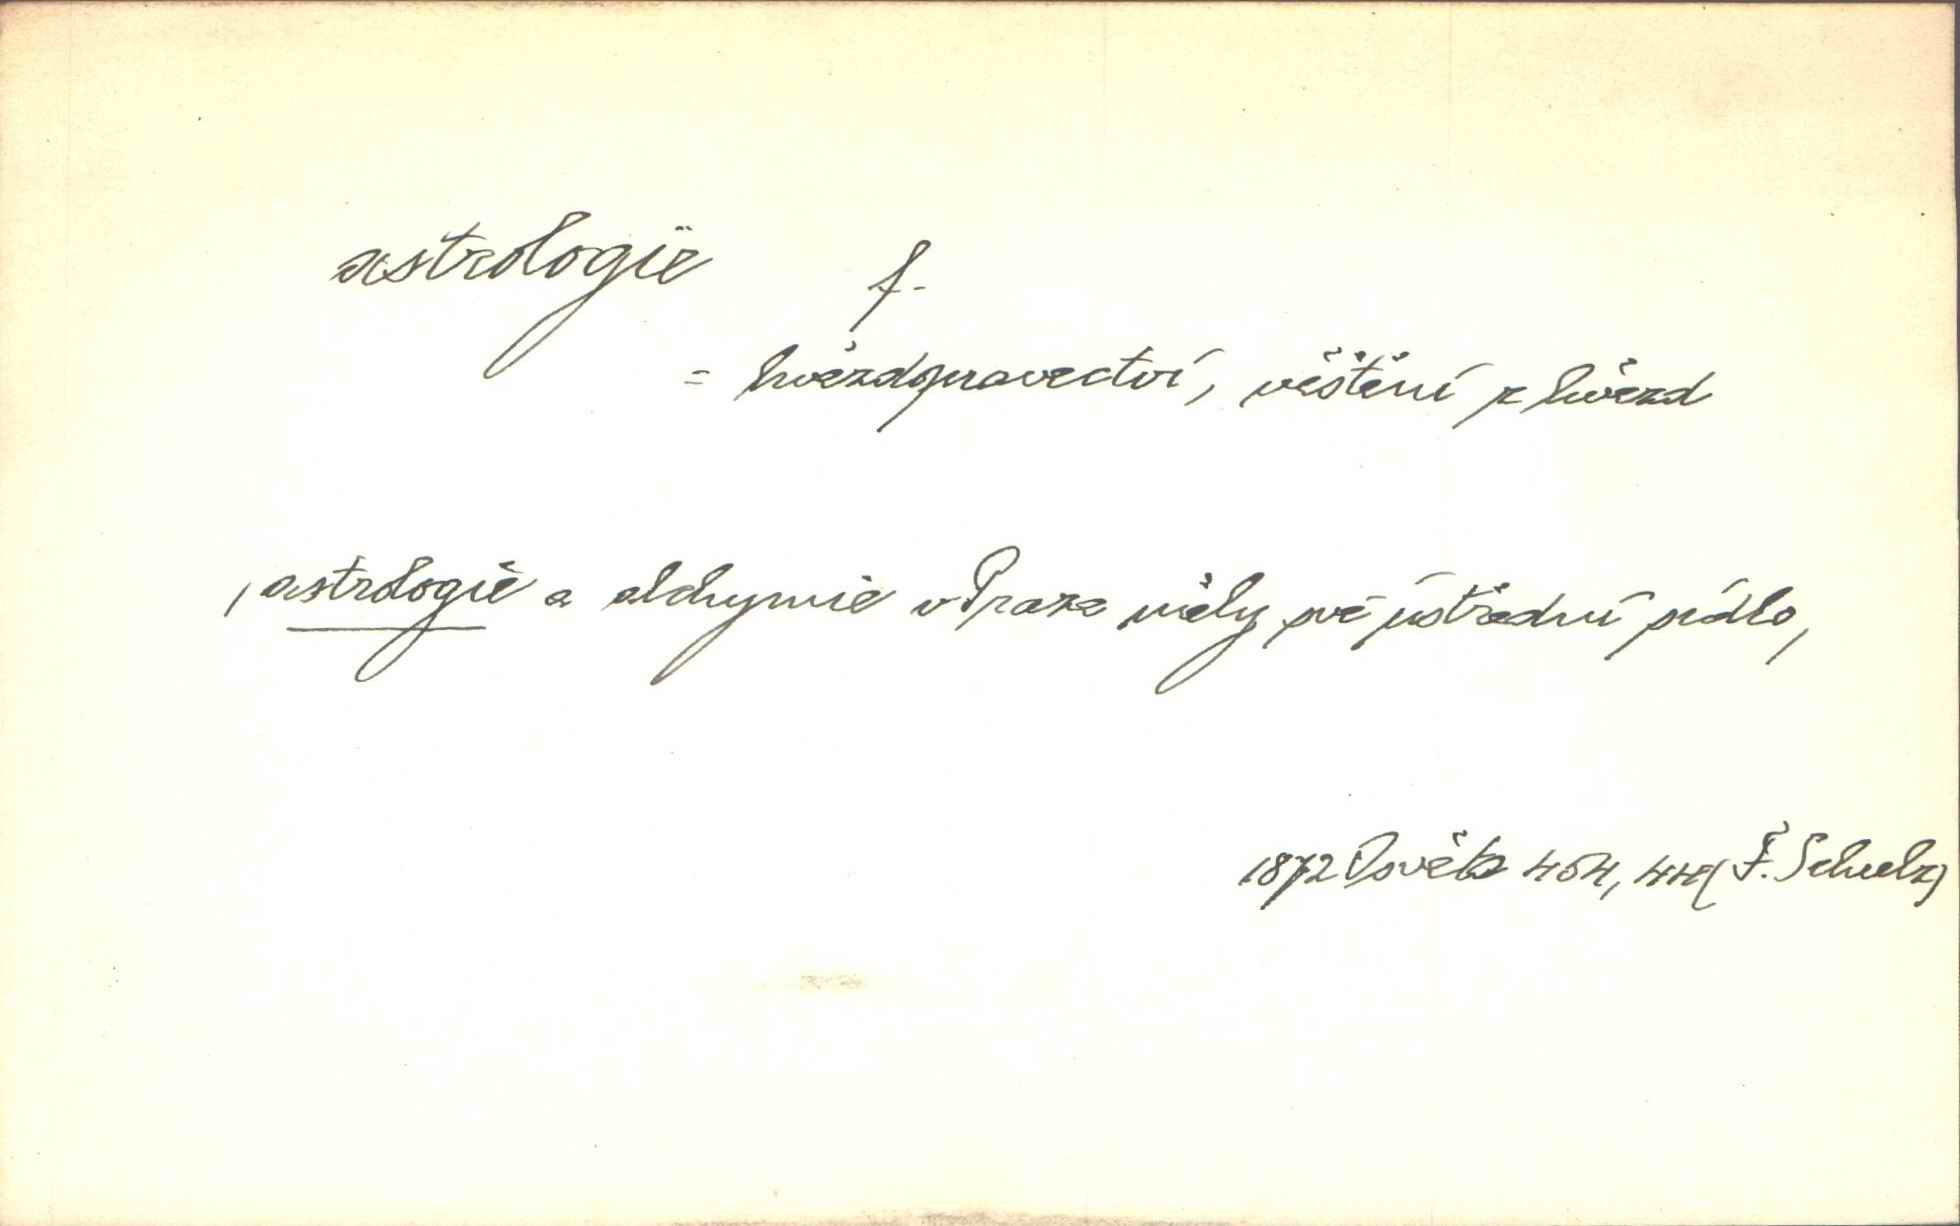 astrologie f.
= hvězdopravectví, věštění z hvězd
, astrologie a alchymie v Praze měly své ústřední sídlo,
1872 Osvěta 454, (F. Schulz)